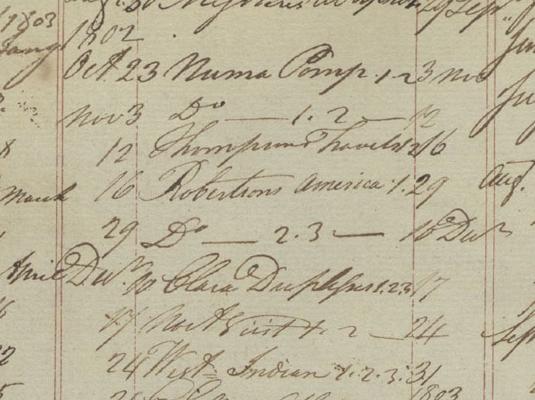 1803 1802
Oct 23 Numa Pomp. 1-2 3 nov
nov 3 Do — 1. 2 — 12
8 12 Thompsons Travels 1 2 16
March 16 Robertsons America 1. 29 Aug.
29 Do — 2.3 — 10 Decr
April Decr. 10 Clara Duplessis 1.2.3 17
17 1 2 — 24 Sep
22 24 West Indian 1. 2. 3. 31
1803